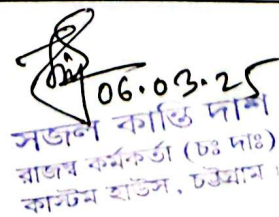 06.03.25
সজল কান্তি দাশ
রাজস্ব কর্মকর্তা (চঃ দাঃ)
কাস্টম হাউস, চট্টগ্রাম।